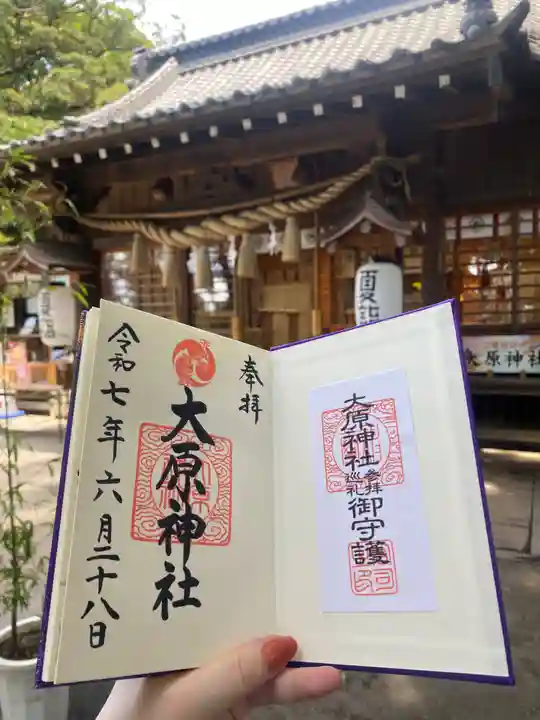 奉拝
大原神社
令和七年六月二十八日
大原神社参拝巡礼御守護
夏
大原神社